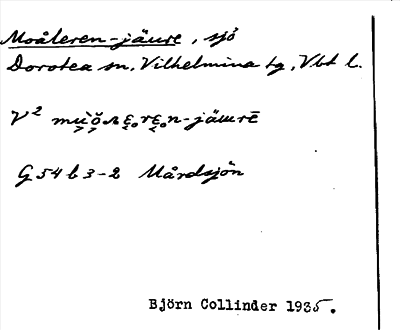 Moåleren-jäure, sjö
Dorotea sn, Vilhelmina tg, Vbt l.
V²
G 54 b 3-2 Mårdsjön
Björn Collinder 1935.